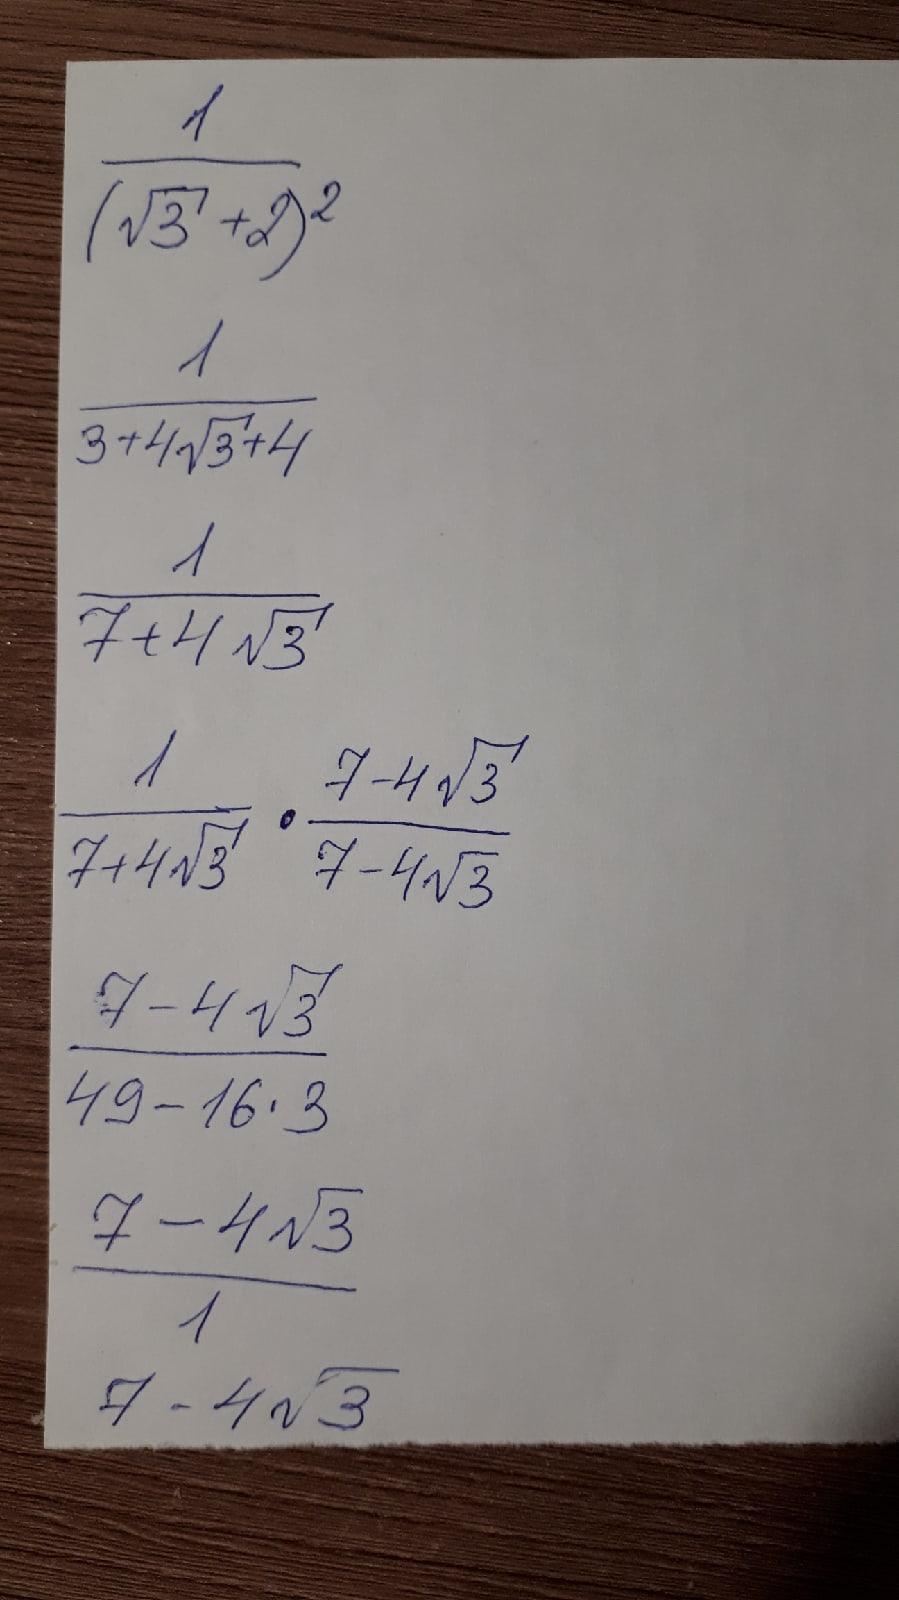 1
(√3 +2)²
1
3+4√3+4
1
7+4√3
1 7-4√3
7+4√3 • 7-4√3
7-4√3
49-16·3
7-4√3
1
7-4√3